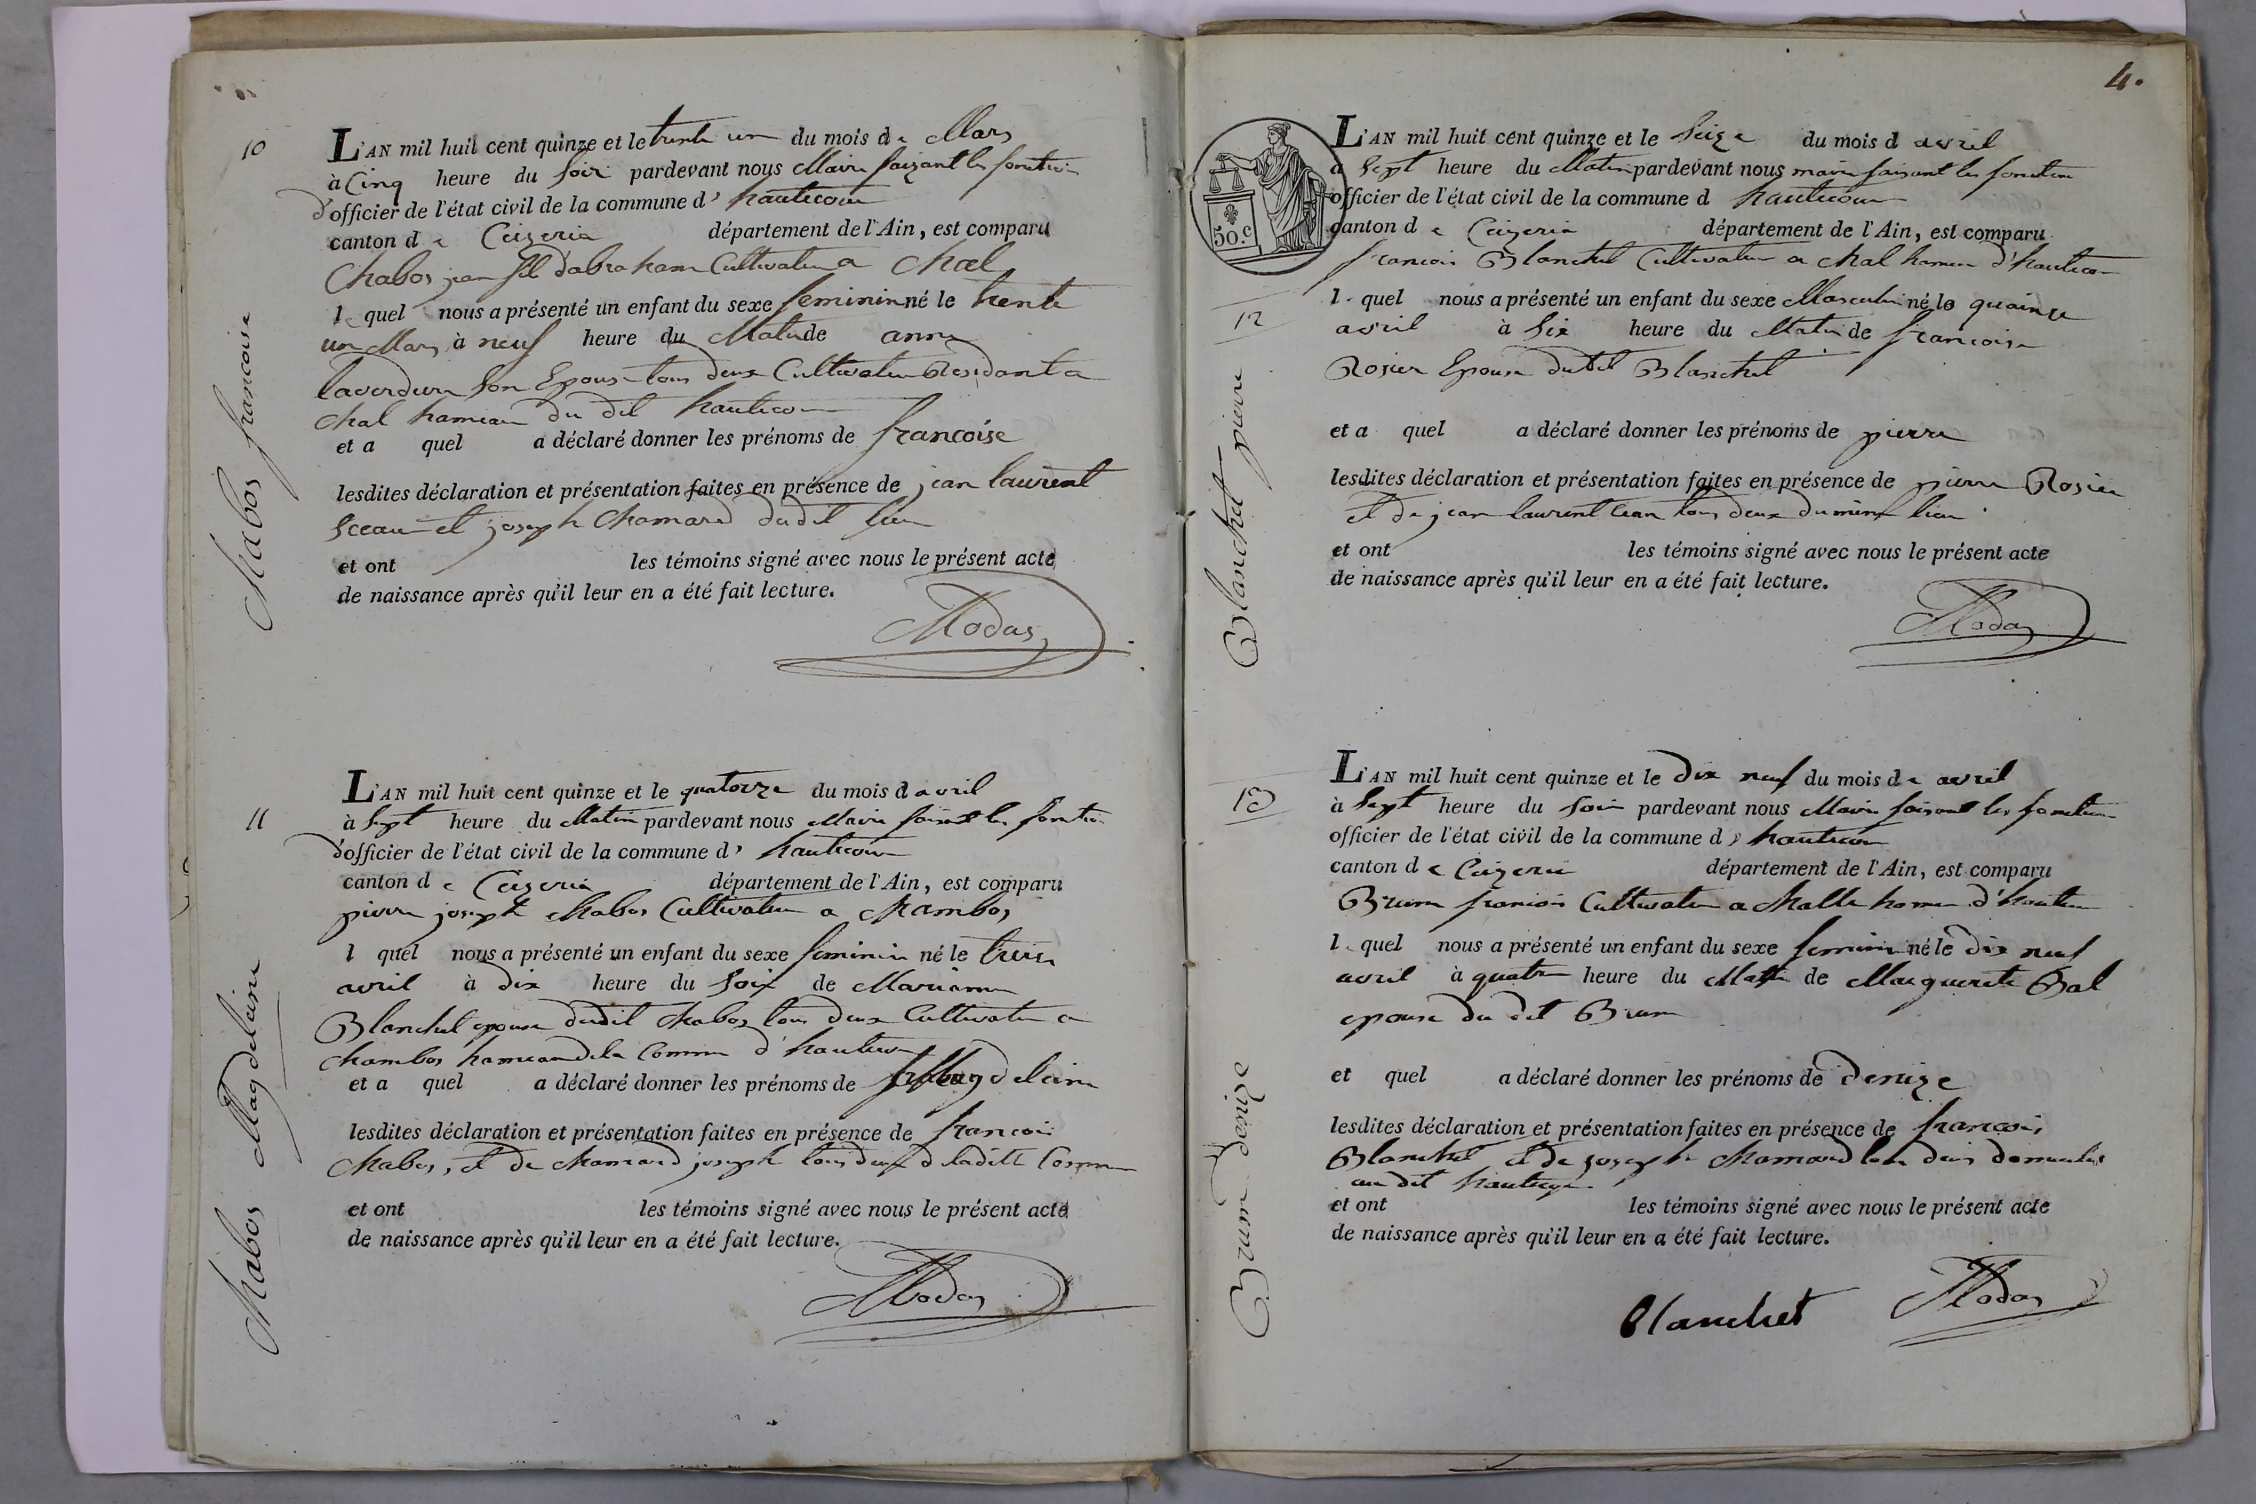 10
Chabos francoise
L'AN mil huit cent quinze et le trente un du mois de Mars
à Cinq heure du Soir pardevant nous Maire faizant les fonction
d'officier de l'état civil de la commune d' hautecour
canton de Ceizeria département de l'Ain, est comparu
Chabos jean fil d'abraham Cultivateur a Chal
le quel nous a présenté un enfant du sexe feminin né le trente
un Mars à neuf heure du Matin de anne
laverdure Son Epouse tous deux Cultivateur Residant a
Chal hameau du dit hautecour
et a quel a déclaré donner les prénoms de francoise
lesdites déclaration et présentation faites en présence de jean laurent
et joseph Chamard dudit lieu
et ont les témoins signé avec nous le présent acte
de naissance après qu'il leur en a été fait lecture.
Modas
11
Chabos Magdelaine
L'AN mil huit cent quinze et le quatorze du mois d avril
à Sept heure du Matin pardevant nous Maire faisant les fonction
d'officier de l'état civil de la commune d' hautecour
canton de Ceizeria département de l'Ain, est comparu
pierre joseph Chabos Cultivateur a Chambos
l quel nous a présenté un enfant du sexe feminin né le treize
avril à dix heure du Soir de Marianne
Blanchet epouse dudit Chabos tous deux Cultivateur a
Chambos hameau de la Comm d'hautecour
et a quel a déclaré donner les prénoms de Magdelaine
lesdites déclaration et présentation faites en présence de francois
Chabos, et de Chamard joseph tous deux de ladite Commune
et ont les témoins signé avec nous le présent acte
de naissance après qu'il leur en a été fait lecture.
Modas
4.
50.c
12
Blanchet pierre
L'AN mil huit cent quinze et le Seize du mois d avril
à Sept heure du Matin pardevant nous maire faisant les fonction
officier de l'état civil de la commune d hautecour
canton de Ceizeria département de l'Ain, est comparu
francois Blanchet Cultivateur a Chal hameau d'hautecour
le quel nous a présenté un enfant du sexe Masculin né le quainze
avril à Six heure du Matin de francoise
Rosier Epouse dudit Blanchet
et a quel a déclaré donner les prénoms de pierre
lesdites déclaration et présentation faites en présence de pierre Rosier
et de jean laurent tous deux du même lieu
et ont les témoins signé avec nous le présent acte
de naissance après qu'il leur en a été fait lecture.
Modas
13
Brum denize
L'AN mil huit cent quinze et le dix neuf du mois de avril
à Sept heure du Soir pardevant nous Maire faisant les fonction
officier de l'état civil de la commune d' hautecour
canton de Ceizeria département de l'Ain, est comparu
Brum francois Cultivateur a Challe hameau d'hautecour
le quel nous a présenté un enfant du sexe feminin né le dix neuf
avril à quatre heure du Matin de Marguerite Bal
epouse du dit Brum
et quel a déclaré donner les prénoms de denize
lesdites déclaration et présentation faites en présence de francois
Blanchet et de joseph Chamard tous deux
au dit hautecour
et ont les témoins signé avec nous le présent acte
de naissance après qu'il leur en a été fait lecture.
Blanchet Modas